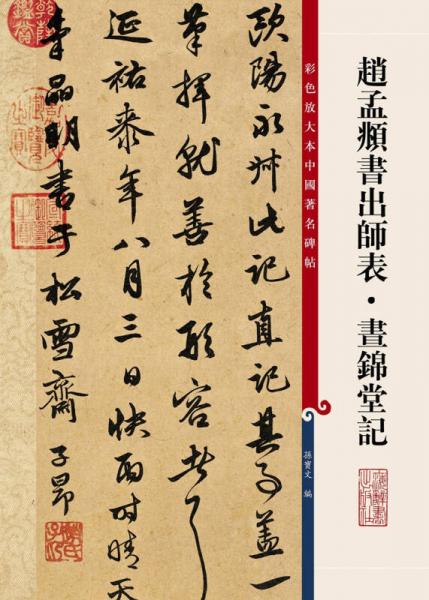 趙孟頫書出師表·晝錦堂記
彩色放大本中國著名碑帖
孫寶文 編
歐陽永叔此記直記其事蓋一
筆揮就善於形容者也
延祐柒年八月三日快雨時晴天
氣晶明書于松雪齋 子昂
趙氏子昂